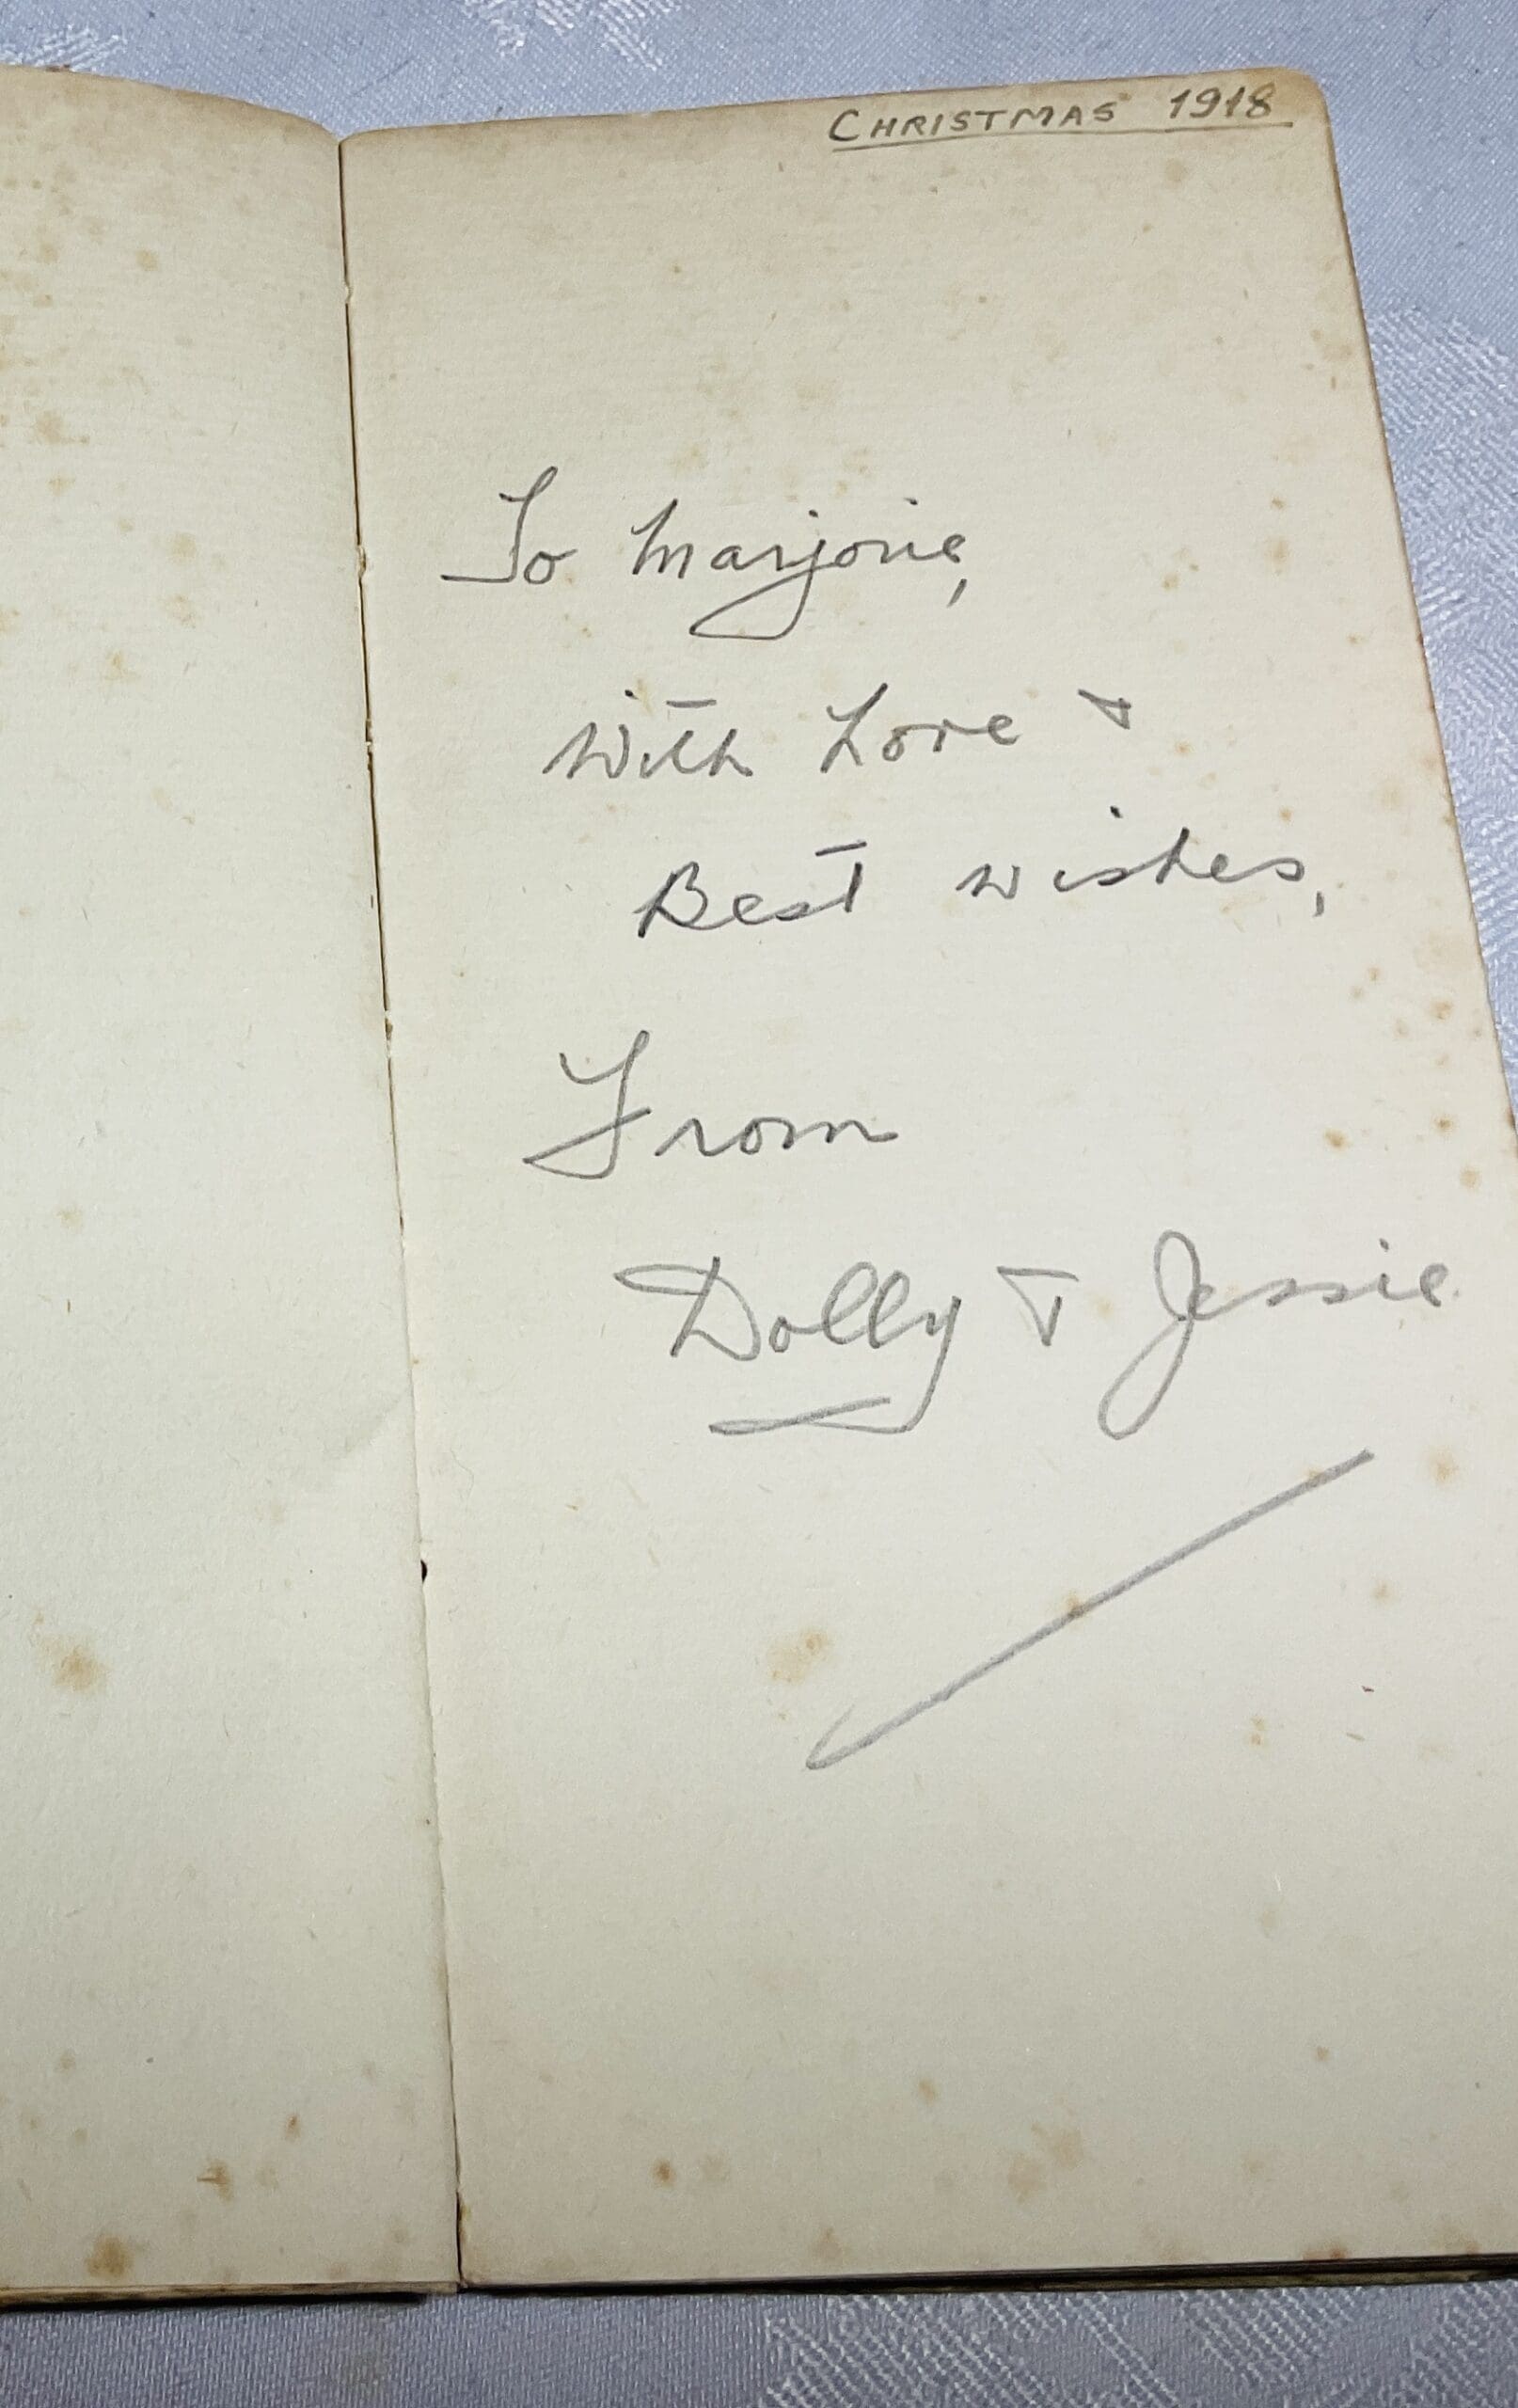 CHRISTMAS 1918
To Marjorie,
With Love &
Best wishes,
From
Dolly & Jessie